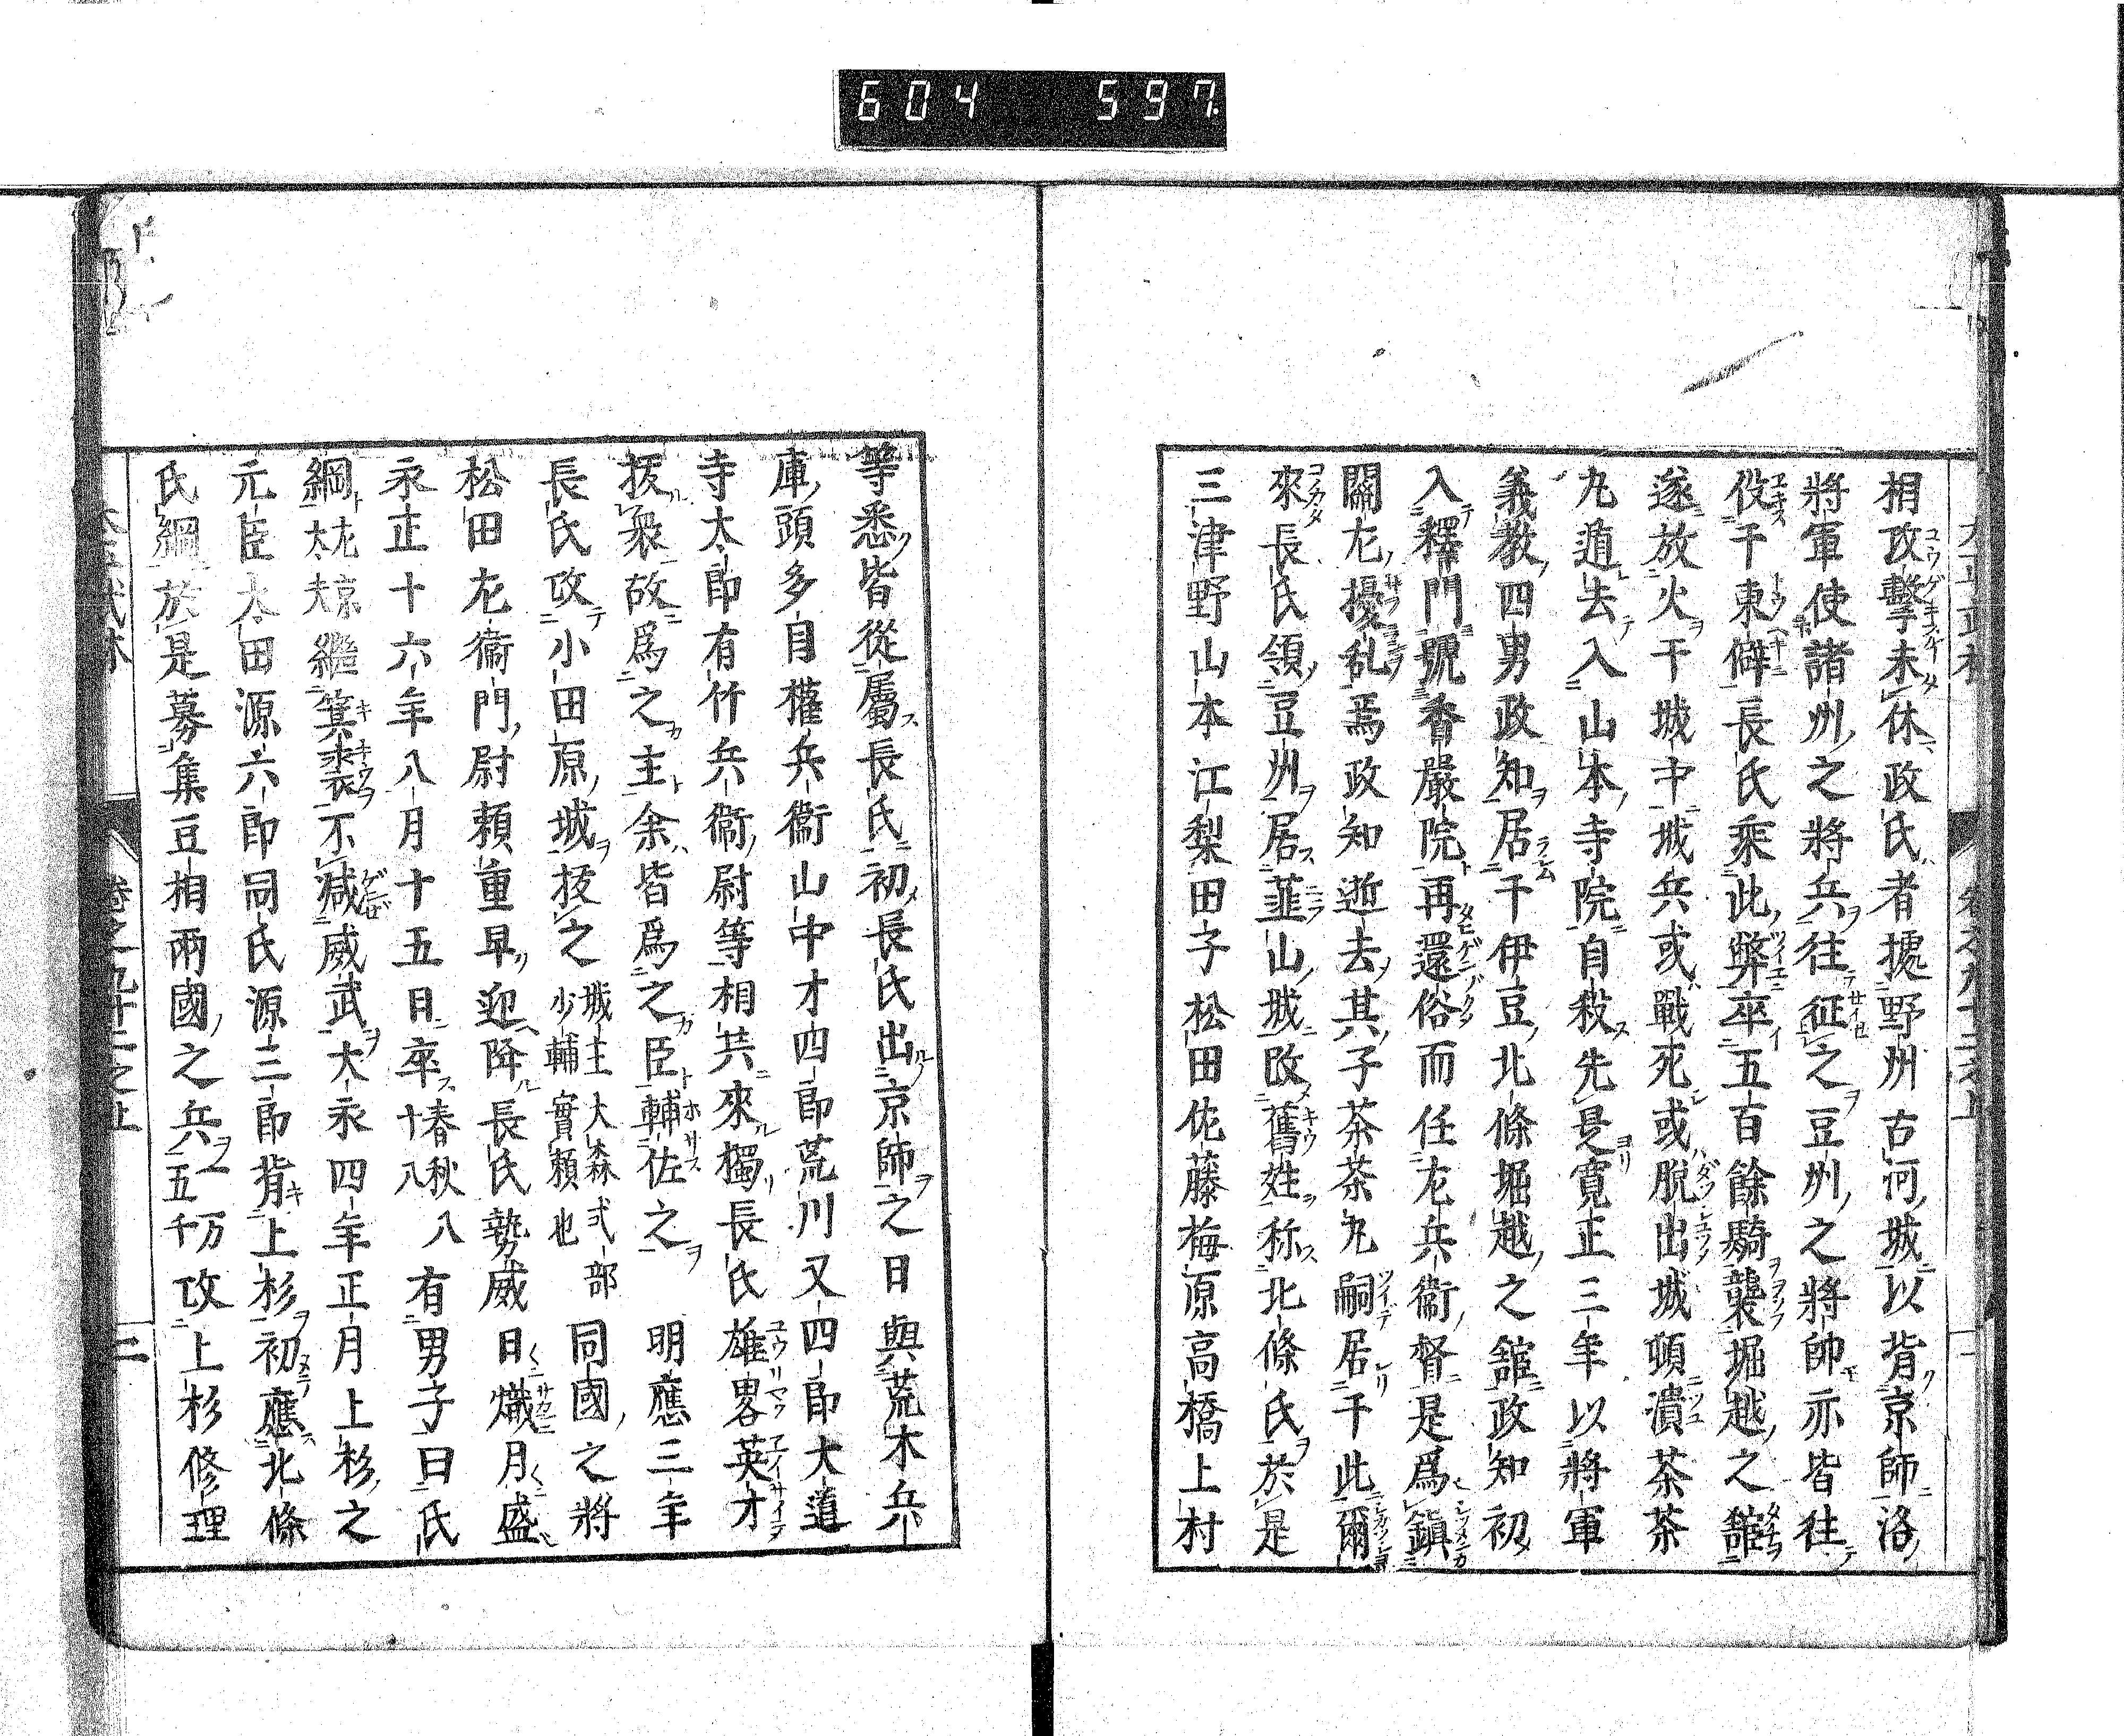 604 597
相攻擊未休政氏者據野州古河城以背京師洛
將軍使諸州之將兵往征之豆州之將帥亦皆往
役于東僻長氏乘此弊卒五百餘騎襲堀越之舘
遂放火于城中城兵或戰死或脫出城頓潰茶茶
丸遁去入山本寺院自殺先是寛正三年以將軍
義教四男政知居于伊豆北條堀越之舘政知初
入釋門號香嚴院再還俗而任左兵衞督是爲鎭
關左擾乱焉政知逝去其子茶茶丸嗣居于此爾
來長氏領豆州居韮山城改舊姓称北條氏於是
三津野山本江梨田子松田佐藤梅原高橋上村
等悉皆從屬長氏初長氏出京師之日與荒木兵
庫頭多目權兵衞山中才四郎荒川又四郎大道
寺太郎有竹兵衞尉等相共來獨長氏雄畧英才
拔衆故爲之主余皆爲之臣輔佐之 明應三年
長氏攻小田原城拔之城主大森式部少輔實頼也同國之將
松田左衞門尉頼重早迎降長氏勢威日熾月盛
永正十六年八月十五日卒春秋八十八有男子曰氏
綱左京太夫繼箕裘不減威武大永四年正月上杉之
元臣太田源六郎同氏源三郎背上杉初應北條
氏綱於是募集豆相兩國之兵一万五千攻上杉修理
卷之九十二之上
二